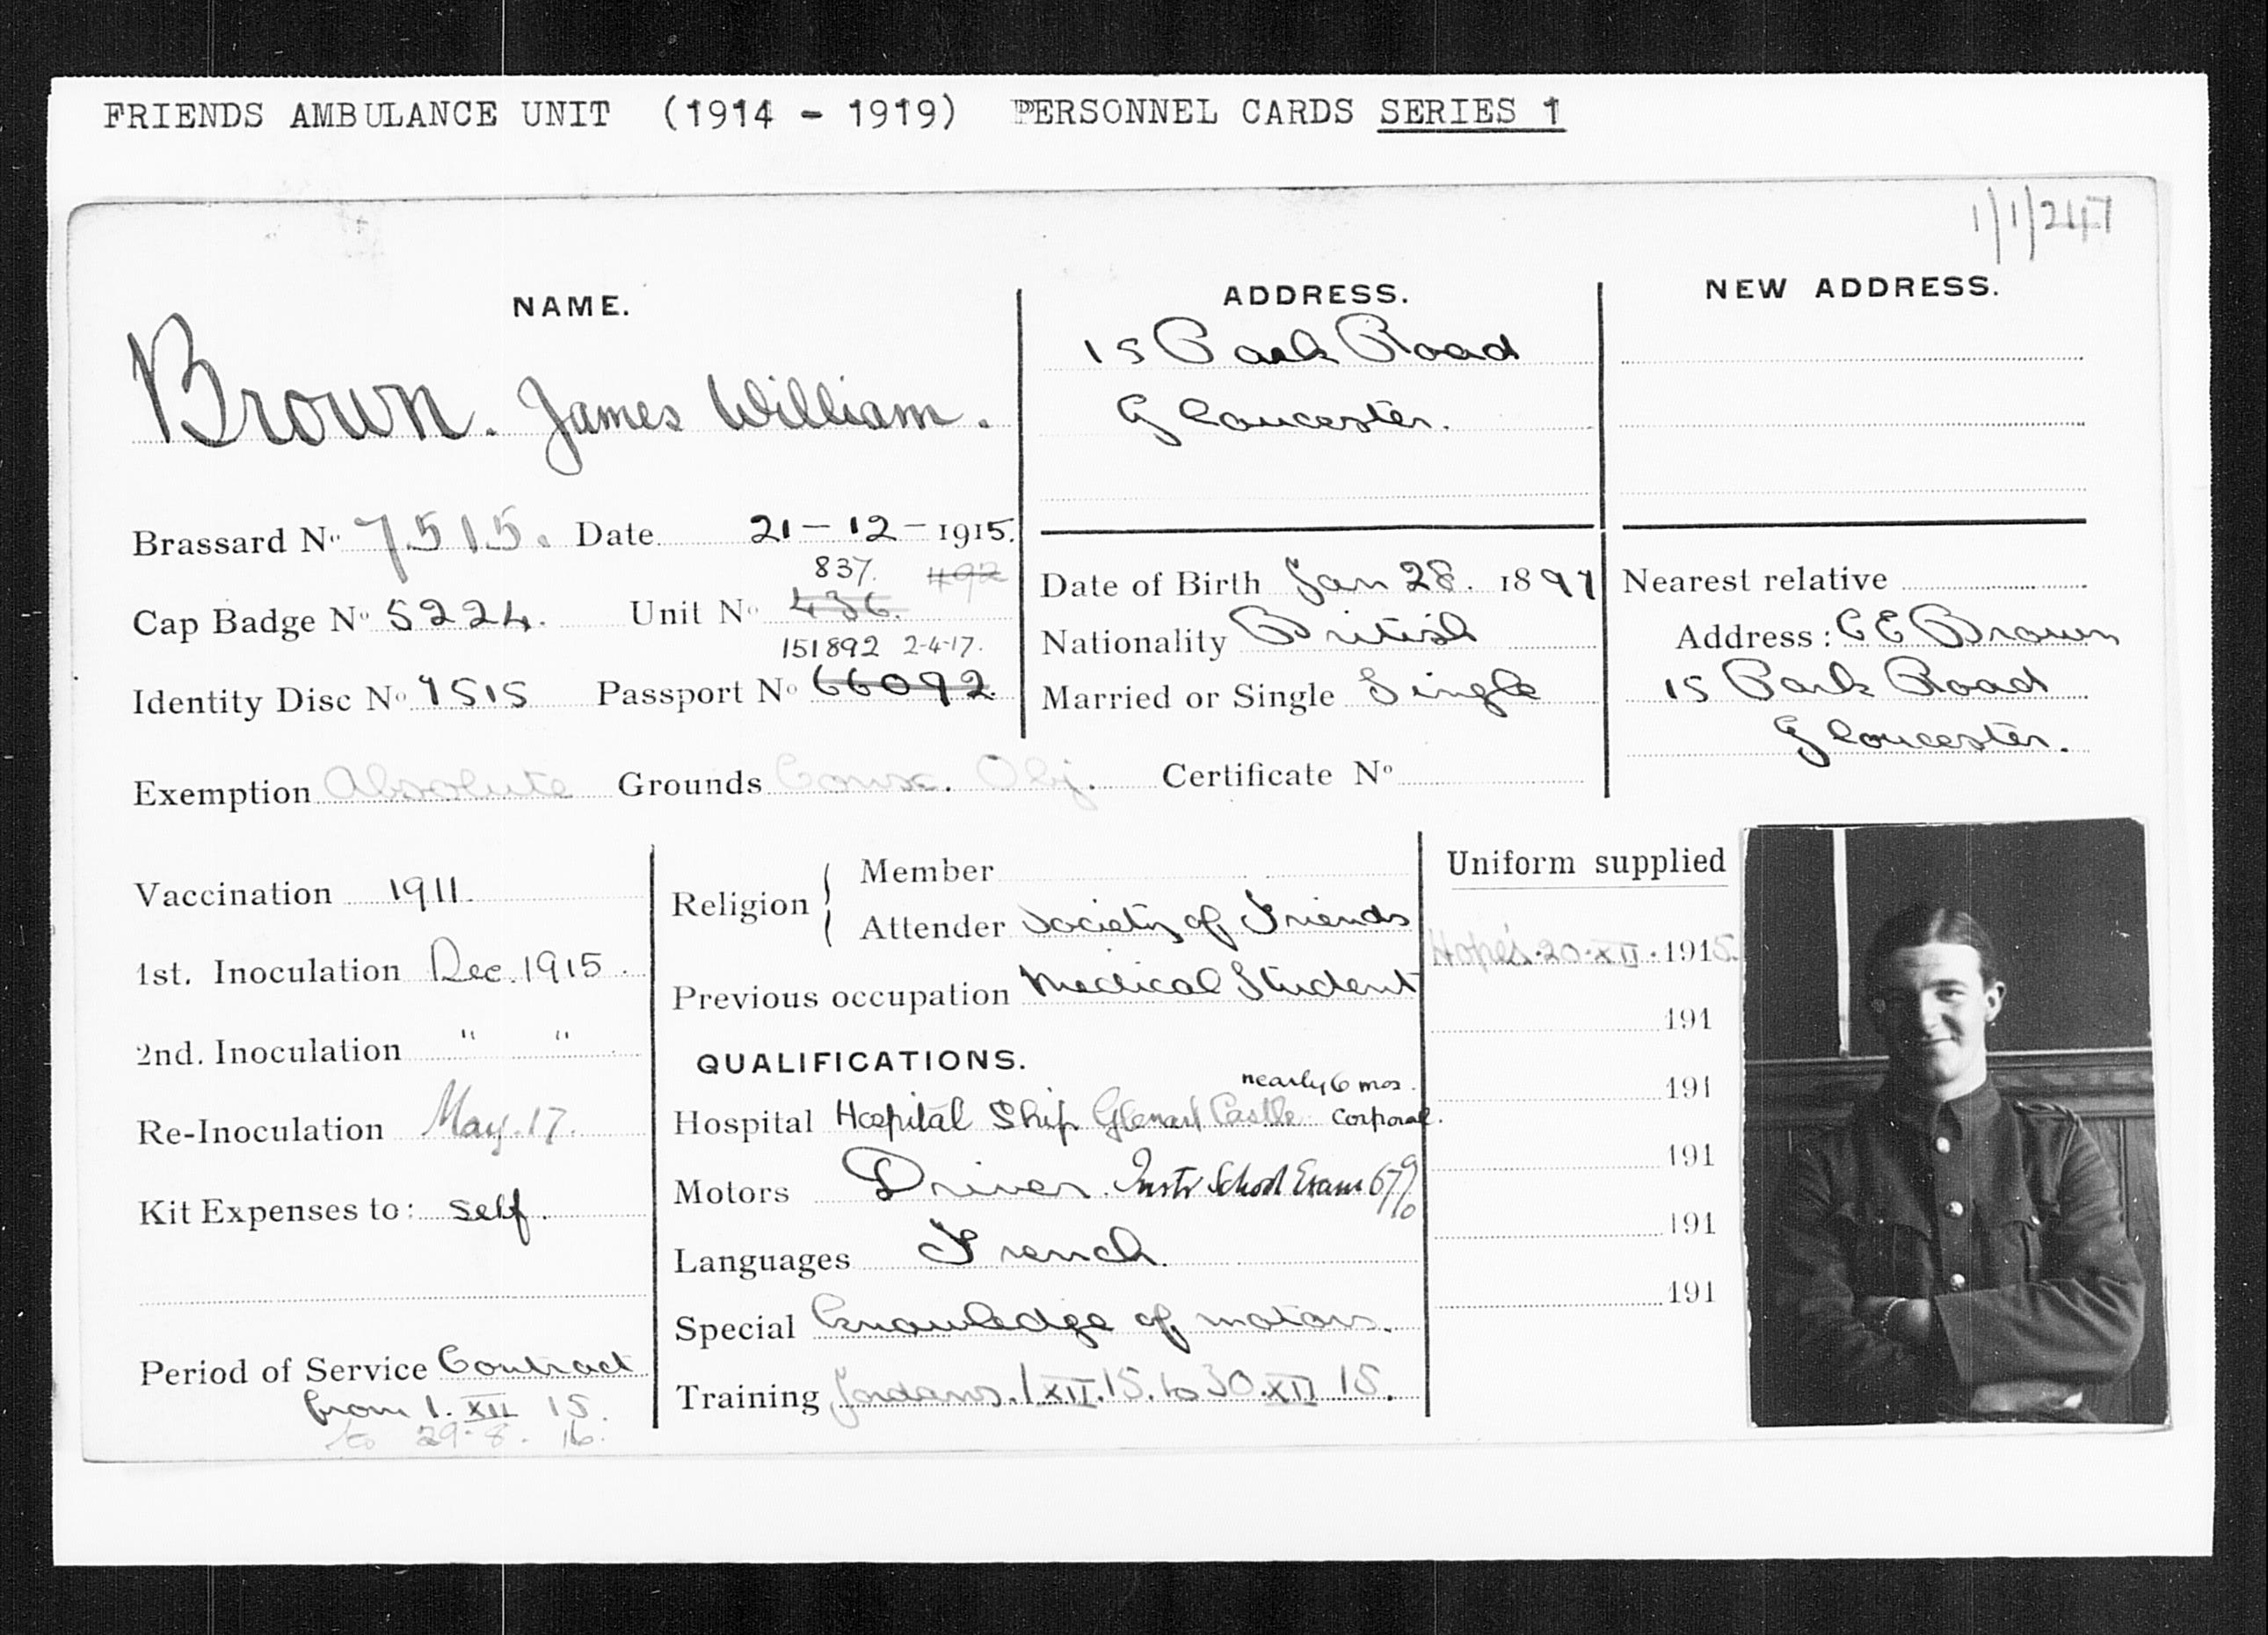 FRIENDS AMBULANCE UNIT (1914 - 1919) PERSONNEL CARDS SERIES 1
1/1/247
NAME.
Brown. James William.
ADDRESS.
15 Park Road
Gloucester.
NEW ADDRESS.
Brassard No 7515. Date 21-12-1915.
837. 492
Cap Badge No 5224. Unit No 436.
151892 2-4-17.
Identity Disc No 7515 Passport No 66092
Date of Birth Jan 28. 1897
Nationality British
Married or Single Single
Nearest relative
Address: C E Brown
15 Park Road
Gloucester.
Exemption Absolute Grounds Consc. Obj. Certificate No
Vaccination 1911.
1st. Inoculation Dec. 1915.
2nd. Inoculation " "
Re-Inoculation May. 17.
Kit Expenses to: self.
Period of Service Contract
from 1. XII 15.
to 29. 8. 16.
Religion { Member
Attender Society of Friends
Previous occupation Medical Student
QUALIFICATIONS.
nearly 6 mos.
Hospital Hospital Ship Glenart Castle corporal.
Motors Driver. Instr School Exam 67%
Languages French.
Special Knowledge of motors.
Training Jordans. 1 XII. 15. to 30. XII 15.
Uniform supplied
Hope's. 20. XII. 1915.
191
191
191
191
191